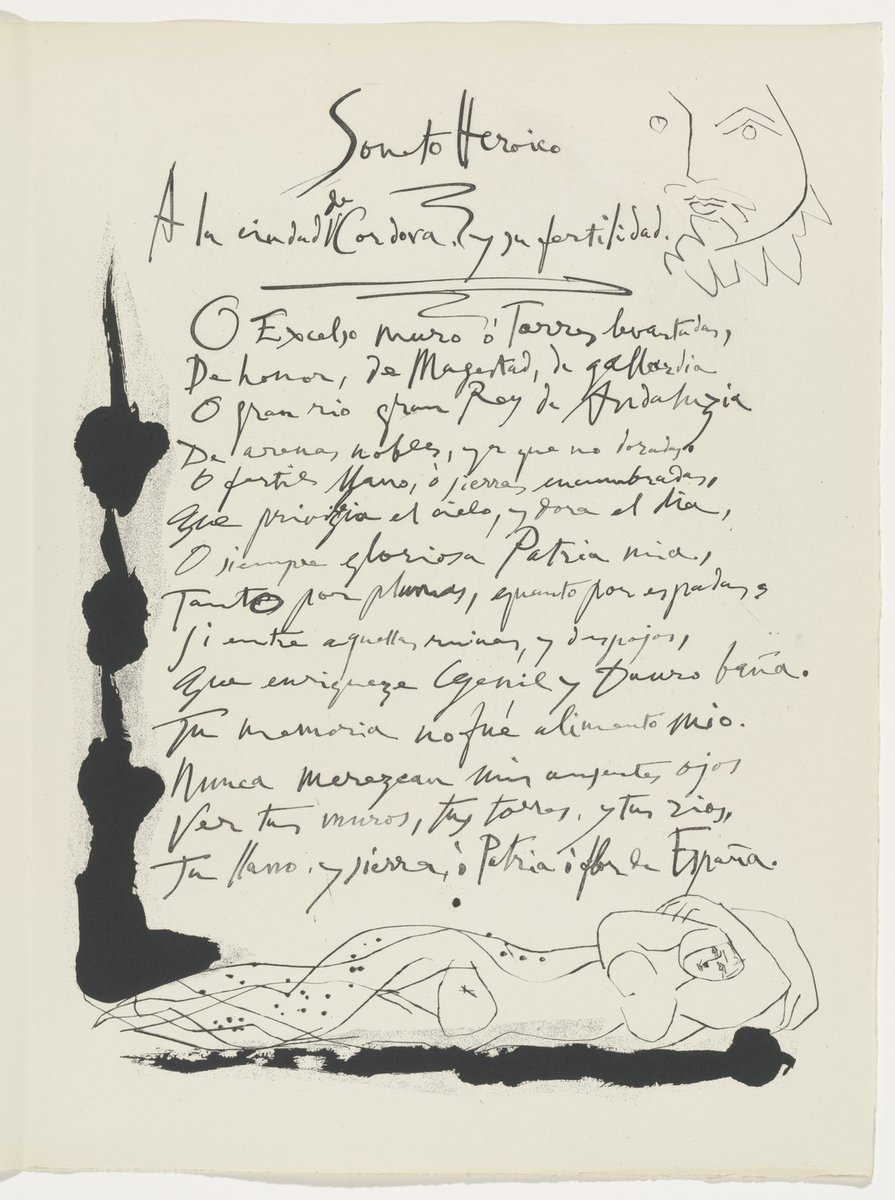 Soneto Heroico
A la ciudad de Cordova. y su fertilidad.
O Excelso muro ó Torres levantadas,
De honor, de Magestad, de gallardia
O gran rio gran Rey de Andaluzia
De arenas nobles, ya que no doradas.
O fertil llano, ó sierras encumbradas,
Que privilegia el cielo, y dora el dia,
O siempre gloriosa Patria mia,
Tanto por plumas, quanto por espadas,
Si entre aquellas ruinas, y despojos,
Que enriqueze Genil y Dauro baña.
Tu memoria no fué alimento mio.
Nunca merezcan mis ausentes ojos
Ver tus muros, tus torres, y tus rios,
Tu llano, y sierra, ó Patria ó flor de España.